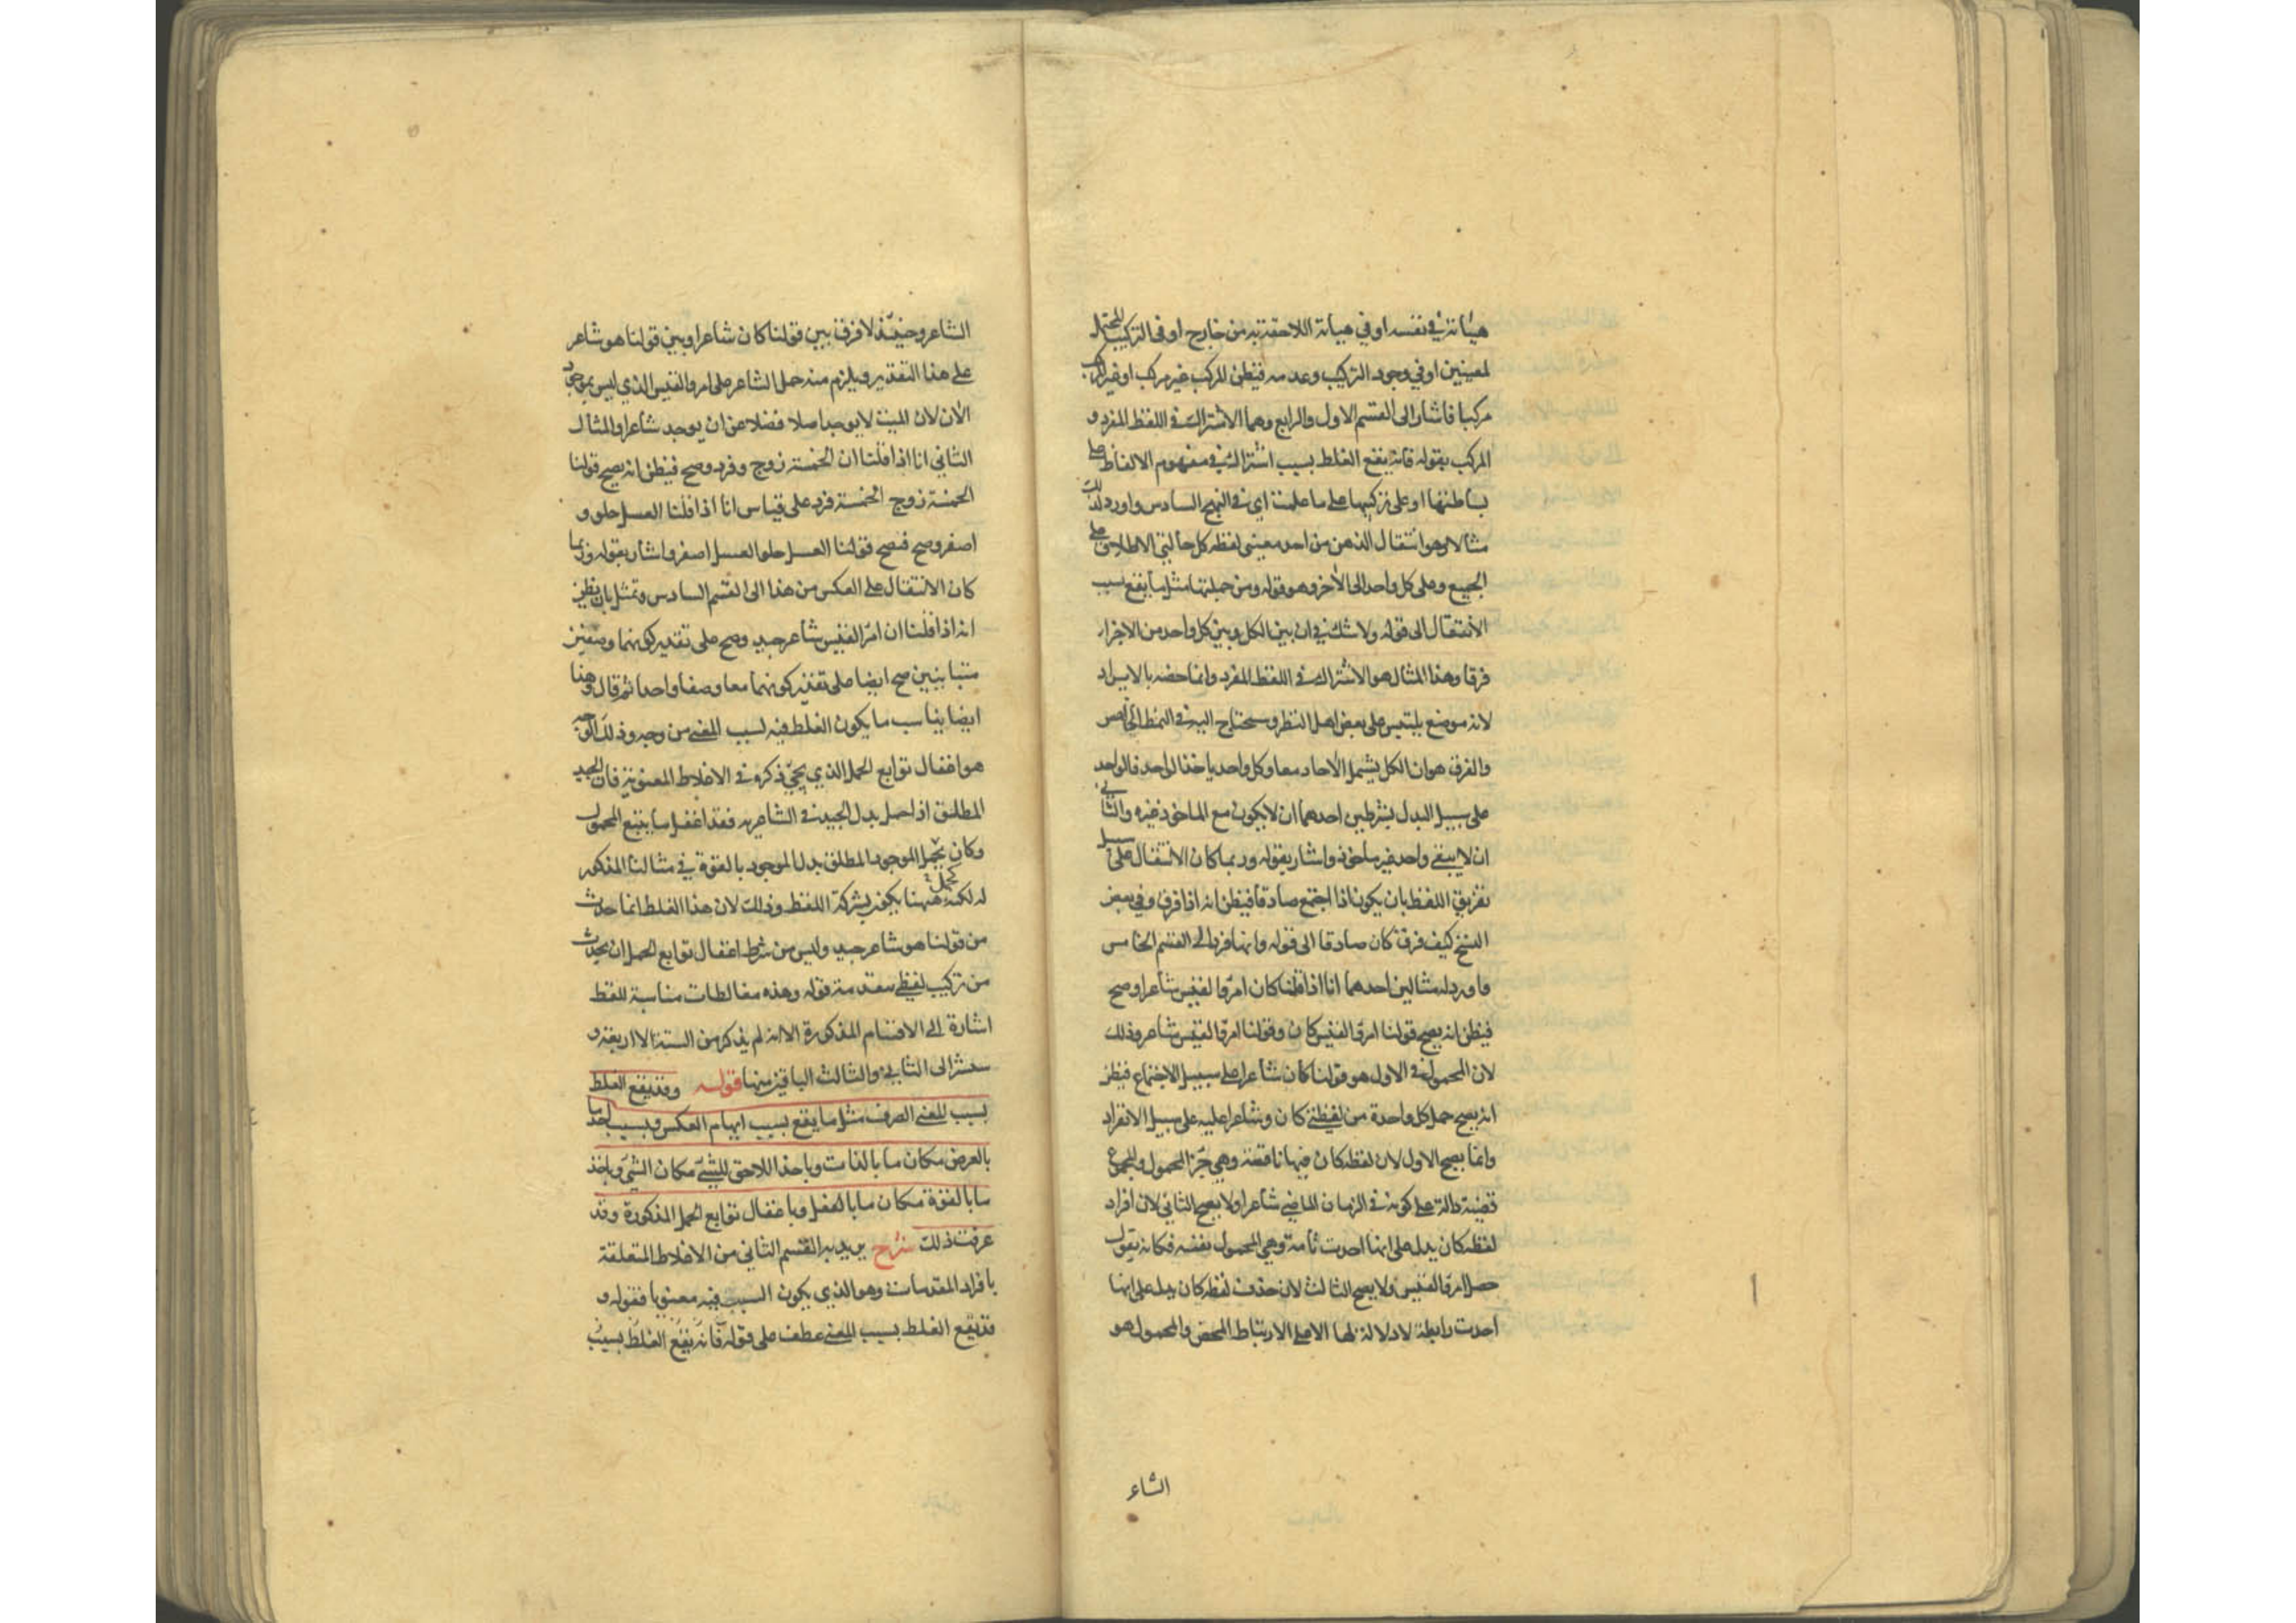 هيئاته في نفسه او في هيئاته اللاحقة به من خارج او في التركيب المحتمل
لمعنيين او في وجود التركيب وعدمه فيظن المركب غير مركب او غير المركب
مركبا فاشار الى القسم الاول والرابع وهما الاشتراك في اللفظ المفرد و
المركب بقوله فانه يقع الغلط بسبب اشتراك في مفهوم الالفاظ على
بساطتها او على تركيبها على ما علمت اي في النهج السادس واورد لذلك
مثالا وهو انتقال الذهن من احد معنيي لفظه كل حالتي الاطلاق على
الجميع وعلى كل واحد الى الآخر وهو قوله ومن جملتها مثل ما يقع بسبب
الانتقال الى قوله ولا شك في ان بين الكل وبين كل واحد من الاجزاء
فرقا وهذا المثال هو الاشتراك في اللفظ المفرد وانما خصه بالايراد
لانه موضع يلتبس على بعض اهل النظر وسيحتاج اليه في النمط الخامس
والفرق هو ان الكل يشمل الآحاد معا وكل واحد ياخذ الواحد فالواحد
على سبيل البدل بشرطين احدهما ان لا يكون مع الماخوذ غيره والثاني
ان لا يبقى واحد غير ماخوذ واشار بقوله وربما كان الانتقال على سبيل
تفريق اللفظ بان يكون اذا اجتمع صادقا فيظن انه اذا فرق وفي بعض
النسخ كيف فرق كان صادقا الى قوله وانها فرد الى القسم الخامس
واورد له مثالين احدهما انا اذا قلنا كان امرؤ القيس شاعرا وصح
فيظن انه يصح قولنا امرؤ القيس كان وقولنا امرؤ القيس شاعر وذلك
لان المحمول في الاول هو قولنا كان شاعرا على سبيل الاجتماع فيظن
انه يصح حمل كل واحدة من لفظتي كان وشاعرا عليه على سبيل الانفراد
وانما يصح الاول لان لفظه كان فيها ناقصة وهي جزء المحمول والمجموع
قضية دالة على كونه في الزمان الماضي شاعرا ولا يصح الثاني لان افراد
لفظه كان يدل على انها اخذت تامة وهي المحمول بنفسه فكانه يقول
حصل امرؤ القيس ولا يصح الثالث لان حذف لفظه كان يدل على انها
اخذت رابطة لا دلالة لها الا على الارتباط المحض والمحمول هو
الشاعر
الشاعر وحينئذ لا فرق بين قولنا كان شاعرا وبين قولنا هو شاعر
على هذا التقدير ويلزم منه حمل الشاعر على امرؤ القيس الذي ليس بموجود
الآن لان الميت لا يوجد اصلا فضلا عن ان يوجد شاعرا والمثال
الثاني انا اذا قلنا ان الخمسة زوج وفرد وصح فيظن انه يصح قولنا
الخمسة زوج الخمسة فرد على قياس انا اذا قلنا العسل حلو و
اصفر وصح فيصح قولنا العسل حلو العسل اصفر واشار بقوله وربما
كان الانتقال على العكس من هذا الى القسم السادس وتمثل بان يظن
انه اذا قلنا ان امرؤ القيس شاعر جيد وصح على تقدير كونهما وصفين
متباينين صح ايضا على تقدير كونهما معا وصفا واحدا ثم قال وهذا
ايضا يناسب ما يكون الغلط فيه بسبب المعنى من وجه وذلك الوجه
هو اغفال توابع الحمل الذي يجيء ذكره في الاغلاط المعنوية فان الجيد
المطلق اذا حمل بدل الجيد في الشاعرية فقد اغفل ما يتبع المحمول
وكان كحمل الموجود المطلق بدل الموجود بالقوة في مثالنا المذكور
له لكنه ههنا يكون بشركة اللفظ وذلك لان هذا الغلط انما حدث
من قولنا هو شاعر جيد وليس من شرط اغفال توابع الحمل ان يحدث
من تركيب لفظي مقدمة قوله وهذه مغالطات مناسبة للفظ
اشارة الى الاقسام المذكورة الا انه لم يذكر من الستة الا اربعة و
سنشير الى الثاني والثالث الباقيين منها قوله وقد يقع الغلط
بسبب المعنى الصرف مثل ما يقع بسبب ايهام العكس وبسبب اخذ ما
بالعرض مكان ما بالذات وباخذ اللاحق للشيء مكان الشيء وباخذ
ما بالقوة مكان ما بالفعل وباغفال توابع الحمل المذكورة وقد
عرفت ذلك شرح يريد به القسم الثاني من الاغلاط المتعلقة
بافراد المقدمات وهو الذي يكون السبب فيه معنويا فقوله و
قد يقع الغلط بسبب المعنى عطف على قوله فانه يقع الغلط بسبب